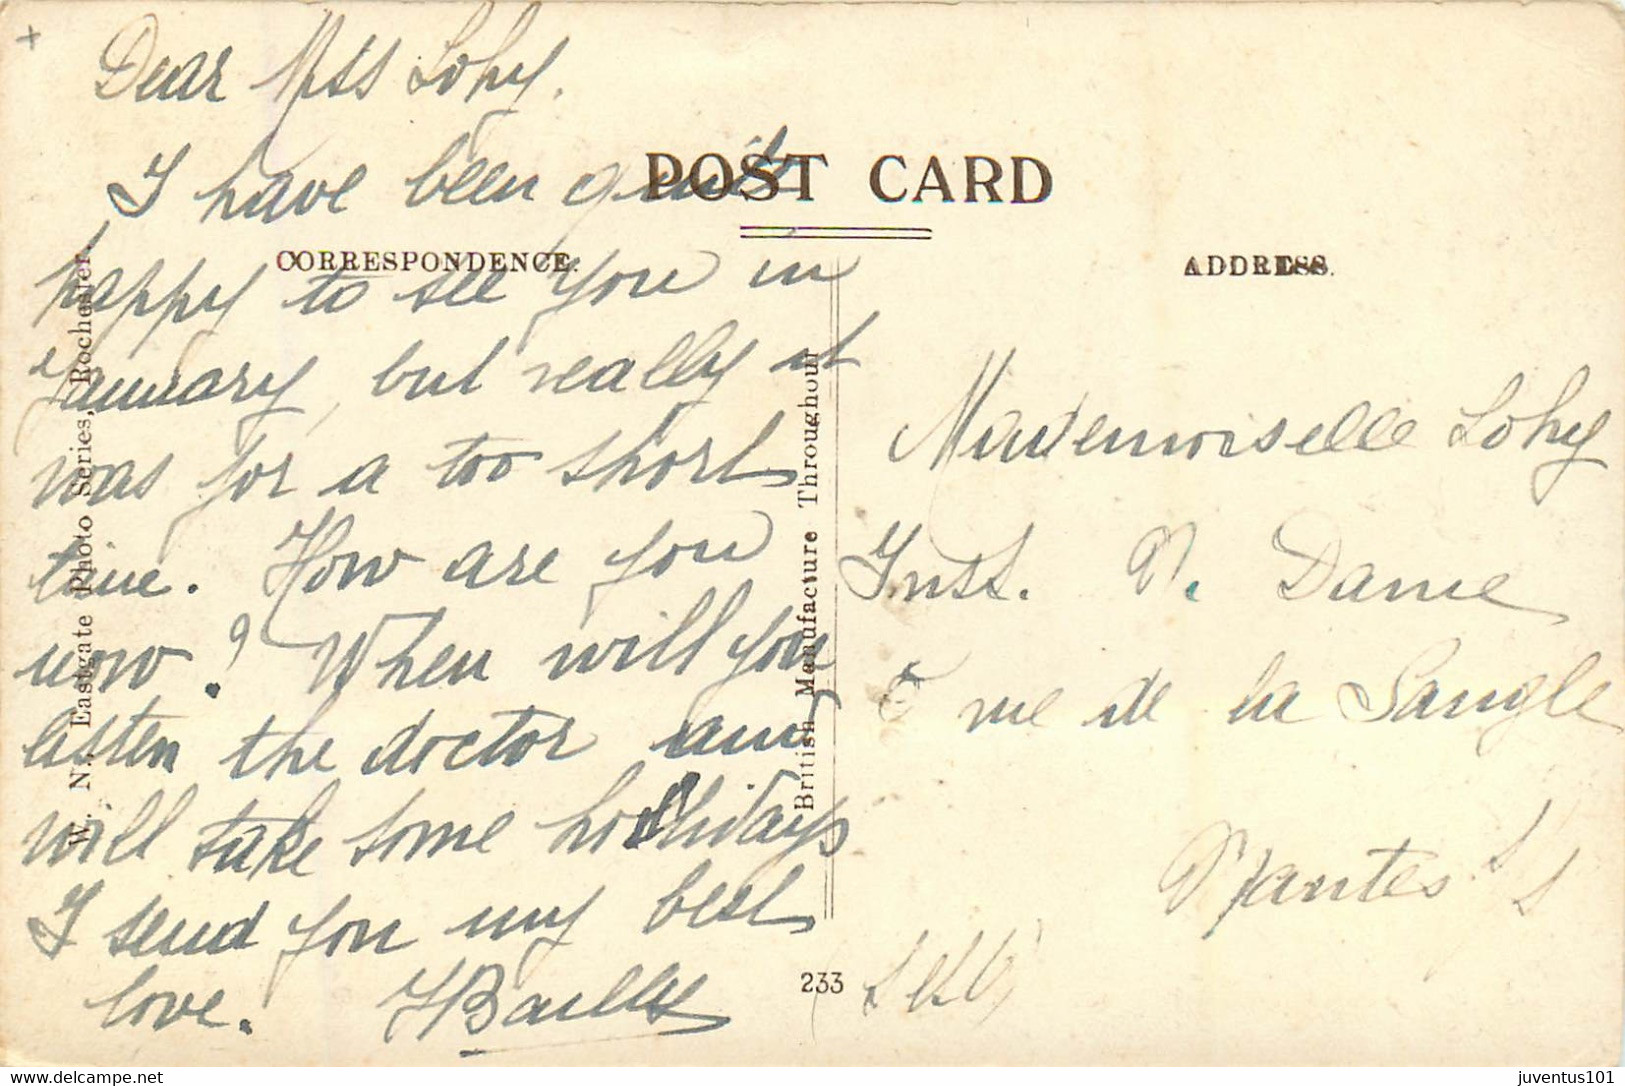 Dear Miss Lohy.
I have been quite
happy to see you in
January, but really it
was for a too short
time. How are you
now? When will you
listen the doctor and
will take some holidays
I send you my best
love. YBailly
POST CARD
CORRESPONDENCE.
ADDRESS.
W. N. Eastgate Photo Series, Rochester.
British Manufacture Throughout
233
Mademoiselle Lohy
Inst. N. Dame
rue de la Sangle
Nantes
delcampe.net
juventus101